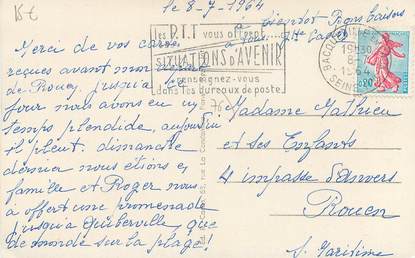 15 €
le 8-7-1964
à bientôt Bons baisers
Merci de vos cartes
reçues avant mon
de Rouen, jusqu'à ce
jour nous avons eu un
temps splendide, aujourd'hui
il pleut, dimanche
dernier nous étions en
famille et Roger nous
a offert une promenade
jusqu'à Quiberville, que
de monde sur la plage!
les P.T.T vous offrent
SITUATIONS D'AVENIR
Renseignez-vous
dans les bureaux de poste!
19H30
8-7
1964
0,20
76
Madame Mathieu
et ses Enfants
4 impasse d'Anvers
Rouen
S. Maritime